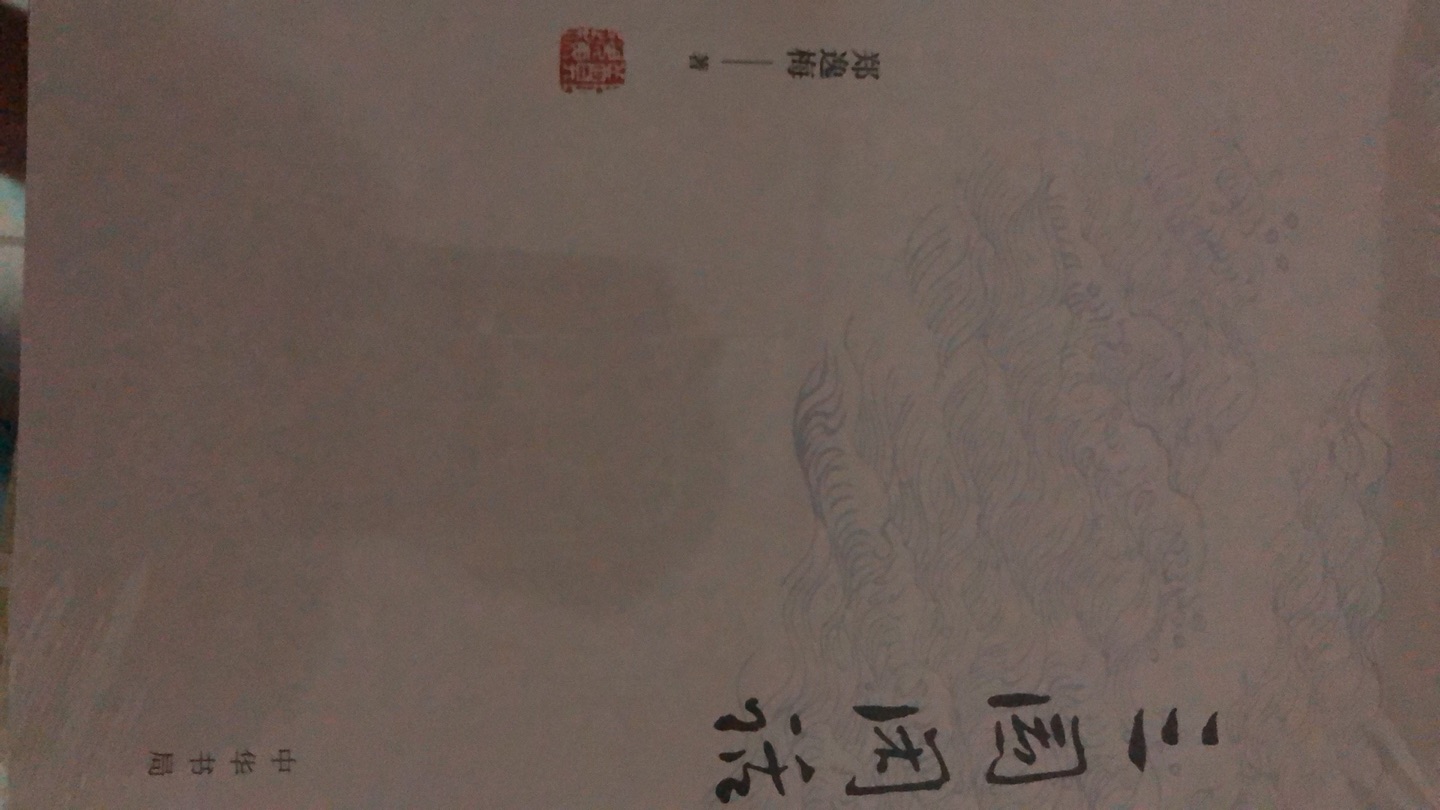 三国闲话
郑逸梅 著
中华书局